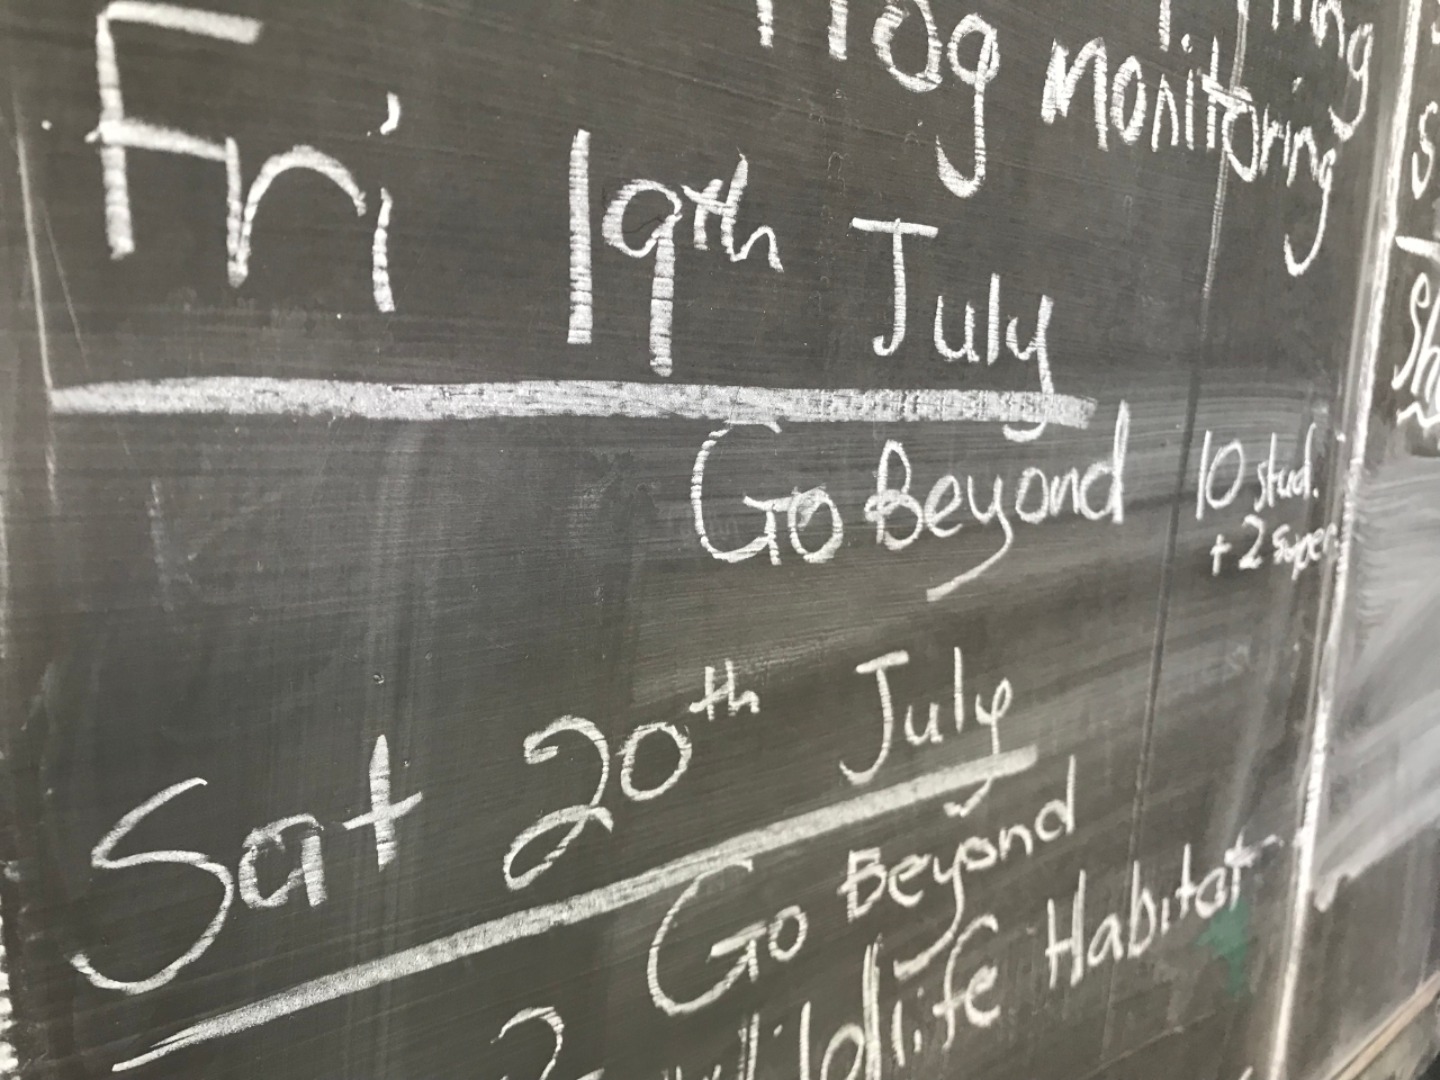 Frog monitoring
Fri 19th July
Go Beyond 10 stud.
+ 2 super.
Sat 20th July
Go Beyond
2 Wildlife Habitat